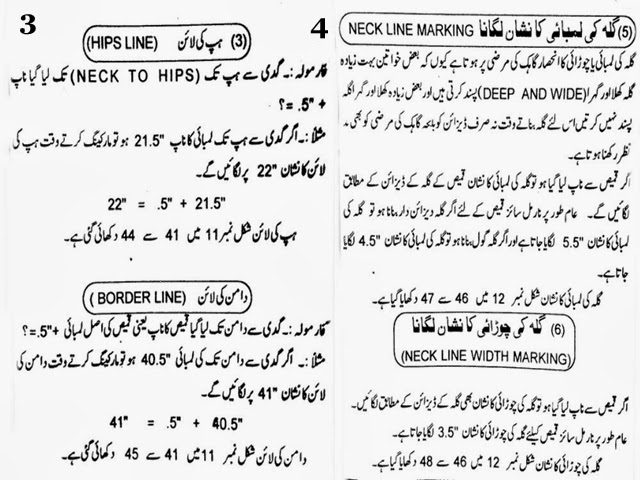 3
(3) ہپ کی لائن
(HIPS LINE)
فارمولہ :۔ گدی سے ہپ تک (NECK TO HIPS) تک لیا گیا ناپ
+ .5" = ؟
مثلاً :۔ اگر گدی سے ہپ تک لمبائی کا ناپ 21.5" ہو تو مارکینگ کرتے وقت ہپ کی
لائن کا نشان 22" پر لگائیں گے۔
22" = .5" + 21.5"
ہپ کی لائن شکل نمبر 11 میں 41 سے 44 دکھائی گئی ہے۔
دامن کی لائن (BORDER LINE)
فارمولہ :۔ گدی سے دامن تک لیا گیا قمیض کا ناپ یعنی قمیض کی اصل لمبائی + .5" = ؟
مثلاً :۔ اگر گدی سے دامن تک کی لمبائی 40.5" ہو تو مارکینگ کرتے وقت دامن کی
لائن کا نشان 41" پر لگائیں گے۔
41" = .5" + 40.5"
دامن کی لائن شکل نمبر 11 میں 41 سے 45 دکھائی گئی ہے۔
4
(5) گلہ کی لمبائی کا نشان لگانا NECK LINE MARKING
گلہ کی لمبائی یا چوڑائی کا انحصار گاہک کی مرضی پر ہوتا ہے کیوں کہ بعض خواتین بہت زیادہ
گلہ کھلا اور گہرا (DEEP AND WIDE) پسند کرتی ہیں اور بعض زیادہ کھلا اور گہرا گلہ
پسند نہیں کرتیں اس لئے گلہ بناتے وقت نہ صرف ڈیزائن کو بلکہ گاہک کی مرضی کو بھی مد
نظر رکھنا ہوتا ہے۔
اگر قمیض سے ناپ لیا گیا ہو تو گلہ کی لمبائی کا نشان قمیض کے گلہ کے ڈیزائن کے مطابق
لگائیں گے۔ عام طور پر نارمل سائز قمیض کے لئے اگر گلہ ڈیزائن دار بنانا ہو تو گلہ کی
لمبائی کا نشان 5.5" لگایا جاتا ہے اور اگر گلہ گول بنانا ہو تو گلہ کی لمبائی کا نشان 4.5" لگایا
جاتا ہے۔
گلہ کی لمبائی کا نشان شکل نمبر 12 میں 46 سے 47 دکھایا گیا ہے۔
(6) گلہ کی چوڑائی کا نشان لگانا
(NECK LINE WIDTH MARKING)
اگر قمیض سے ناپ لیا گیا ہو تو گلہ کی چوڑائی کا نشان بھی گلہ کے ڈیزائن کے مطابق لگائیں۔
عام طور پر نارمل سائز قمیض کیلئے گلہ کی چوڑائی کا نشان 3.5" لگایا جاتا ہے۔
گلہ کی چوڑائی کا نشان شکل نمبر 12 میں 46 سے 48 دکھایا گیا ہے۔